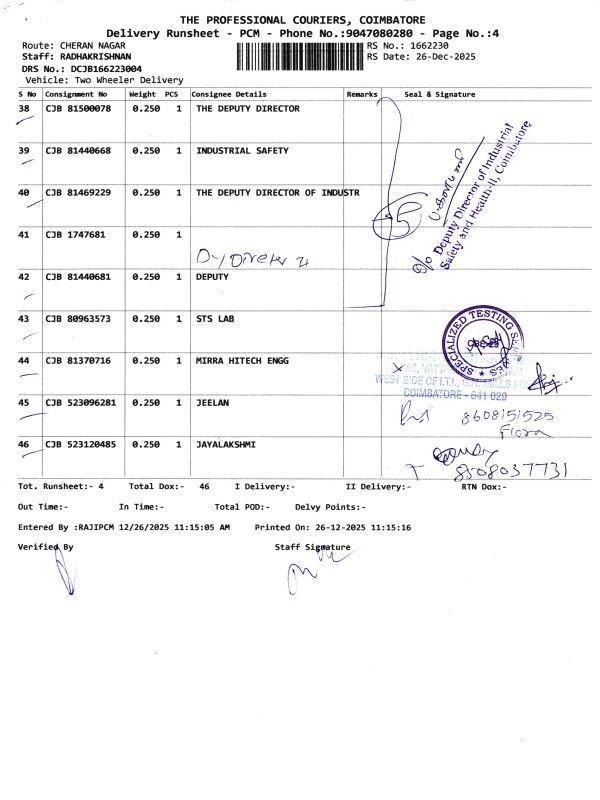 THE PROFESSIONAL COURIERS, COIMBATORE
Delivery Runsheet - PCM - Phone No.:9047080280 - Page No.:4
Route: CHERAN NAGAR
RS No.: 1662230
Staff: RADHAKRISHNAN
RS Date: 26-Dec-2025
DRS No.: DCJB166223004
Vehicle: Two Wheeler Delivery
S No Consignment No Weight PCS Consignee Details Remarks Seal & Signature
38 CJB 81500078 0.250 1 THE DEPUTY DIRECTOR
39 CJB 81440668 0.250 1 INDUSTRIAL SAFETY
40 CJB 81469229 0.250 1 THE DEPUTY DIRECTOR OF INDUSTR
5
O/o Deputy Director of Industrial
Safety and Health-II, Coimbatore
41 CJB 1747681 0.250 1
42 CJB 81440681 0.250 1 DEPUTY
43 CJB 80963573 0.250 1 STS LAB
SPECIALIZED TESTING
44 CJB 81370716 0.250 1 MIRRA HITECH ENGG
WEST SIDE OF I.T.I., MILLS
COIMBATORE - 641 029
45 CJB 523096281 0.250 1 JEELAN
8608151525
Flora
46 CJB 523120485 0.250 1 JAYALAKSHMI
8508037731
Tot. Runsheet:- 4 Total Dox:- 46 I Delivery:- II Delivery:- RTN Dox:-
Out Time:- In Time:- Total POD:- Delvy Points:-
Entered By :RAJIPCM 12/26/2025 11:15:05 AM Printed On: 26-12-2025 11:15:16
Verified By Staff Signature